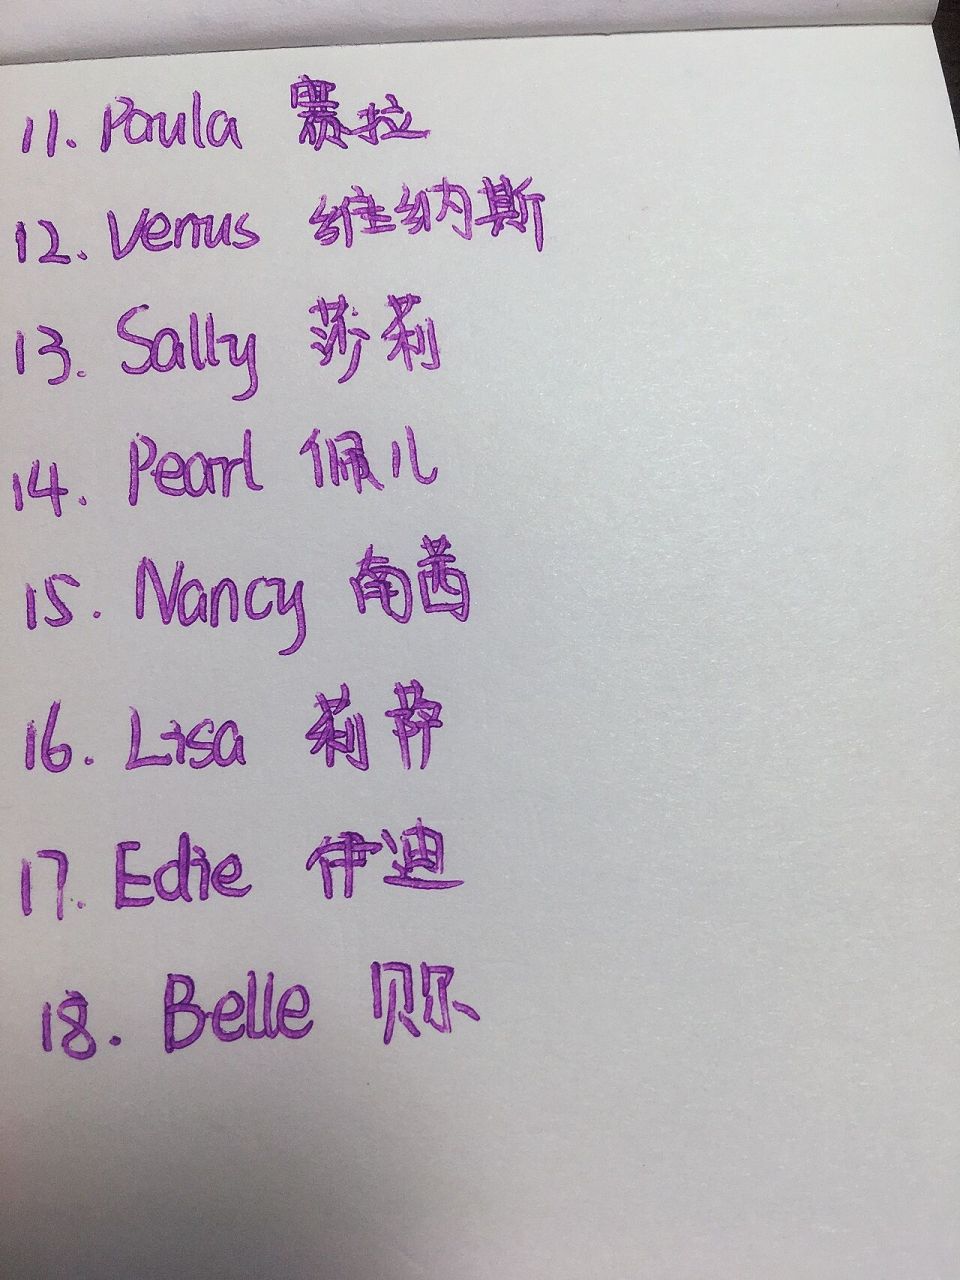 11. Paula 赛拉
12. Venus 维纳斯
13. Sally 莎莉
14. Pearl 佩儿
15. Nancy 南茜
16. Lisa 莉萨
17. Edie 伊迪
18. Belle 贝尔